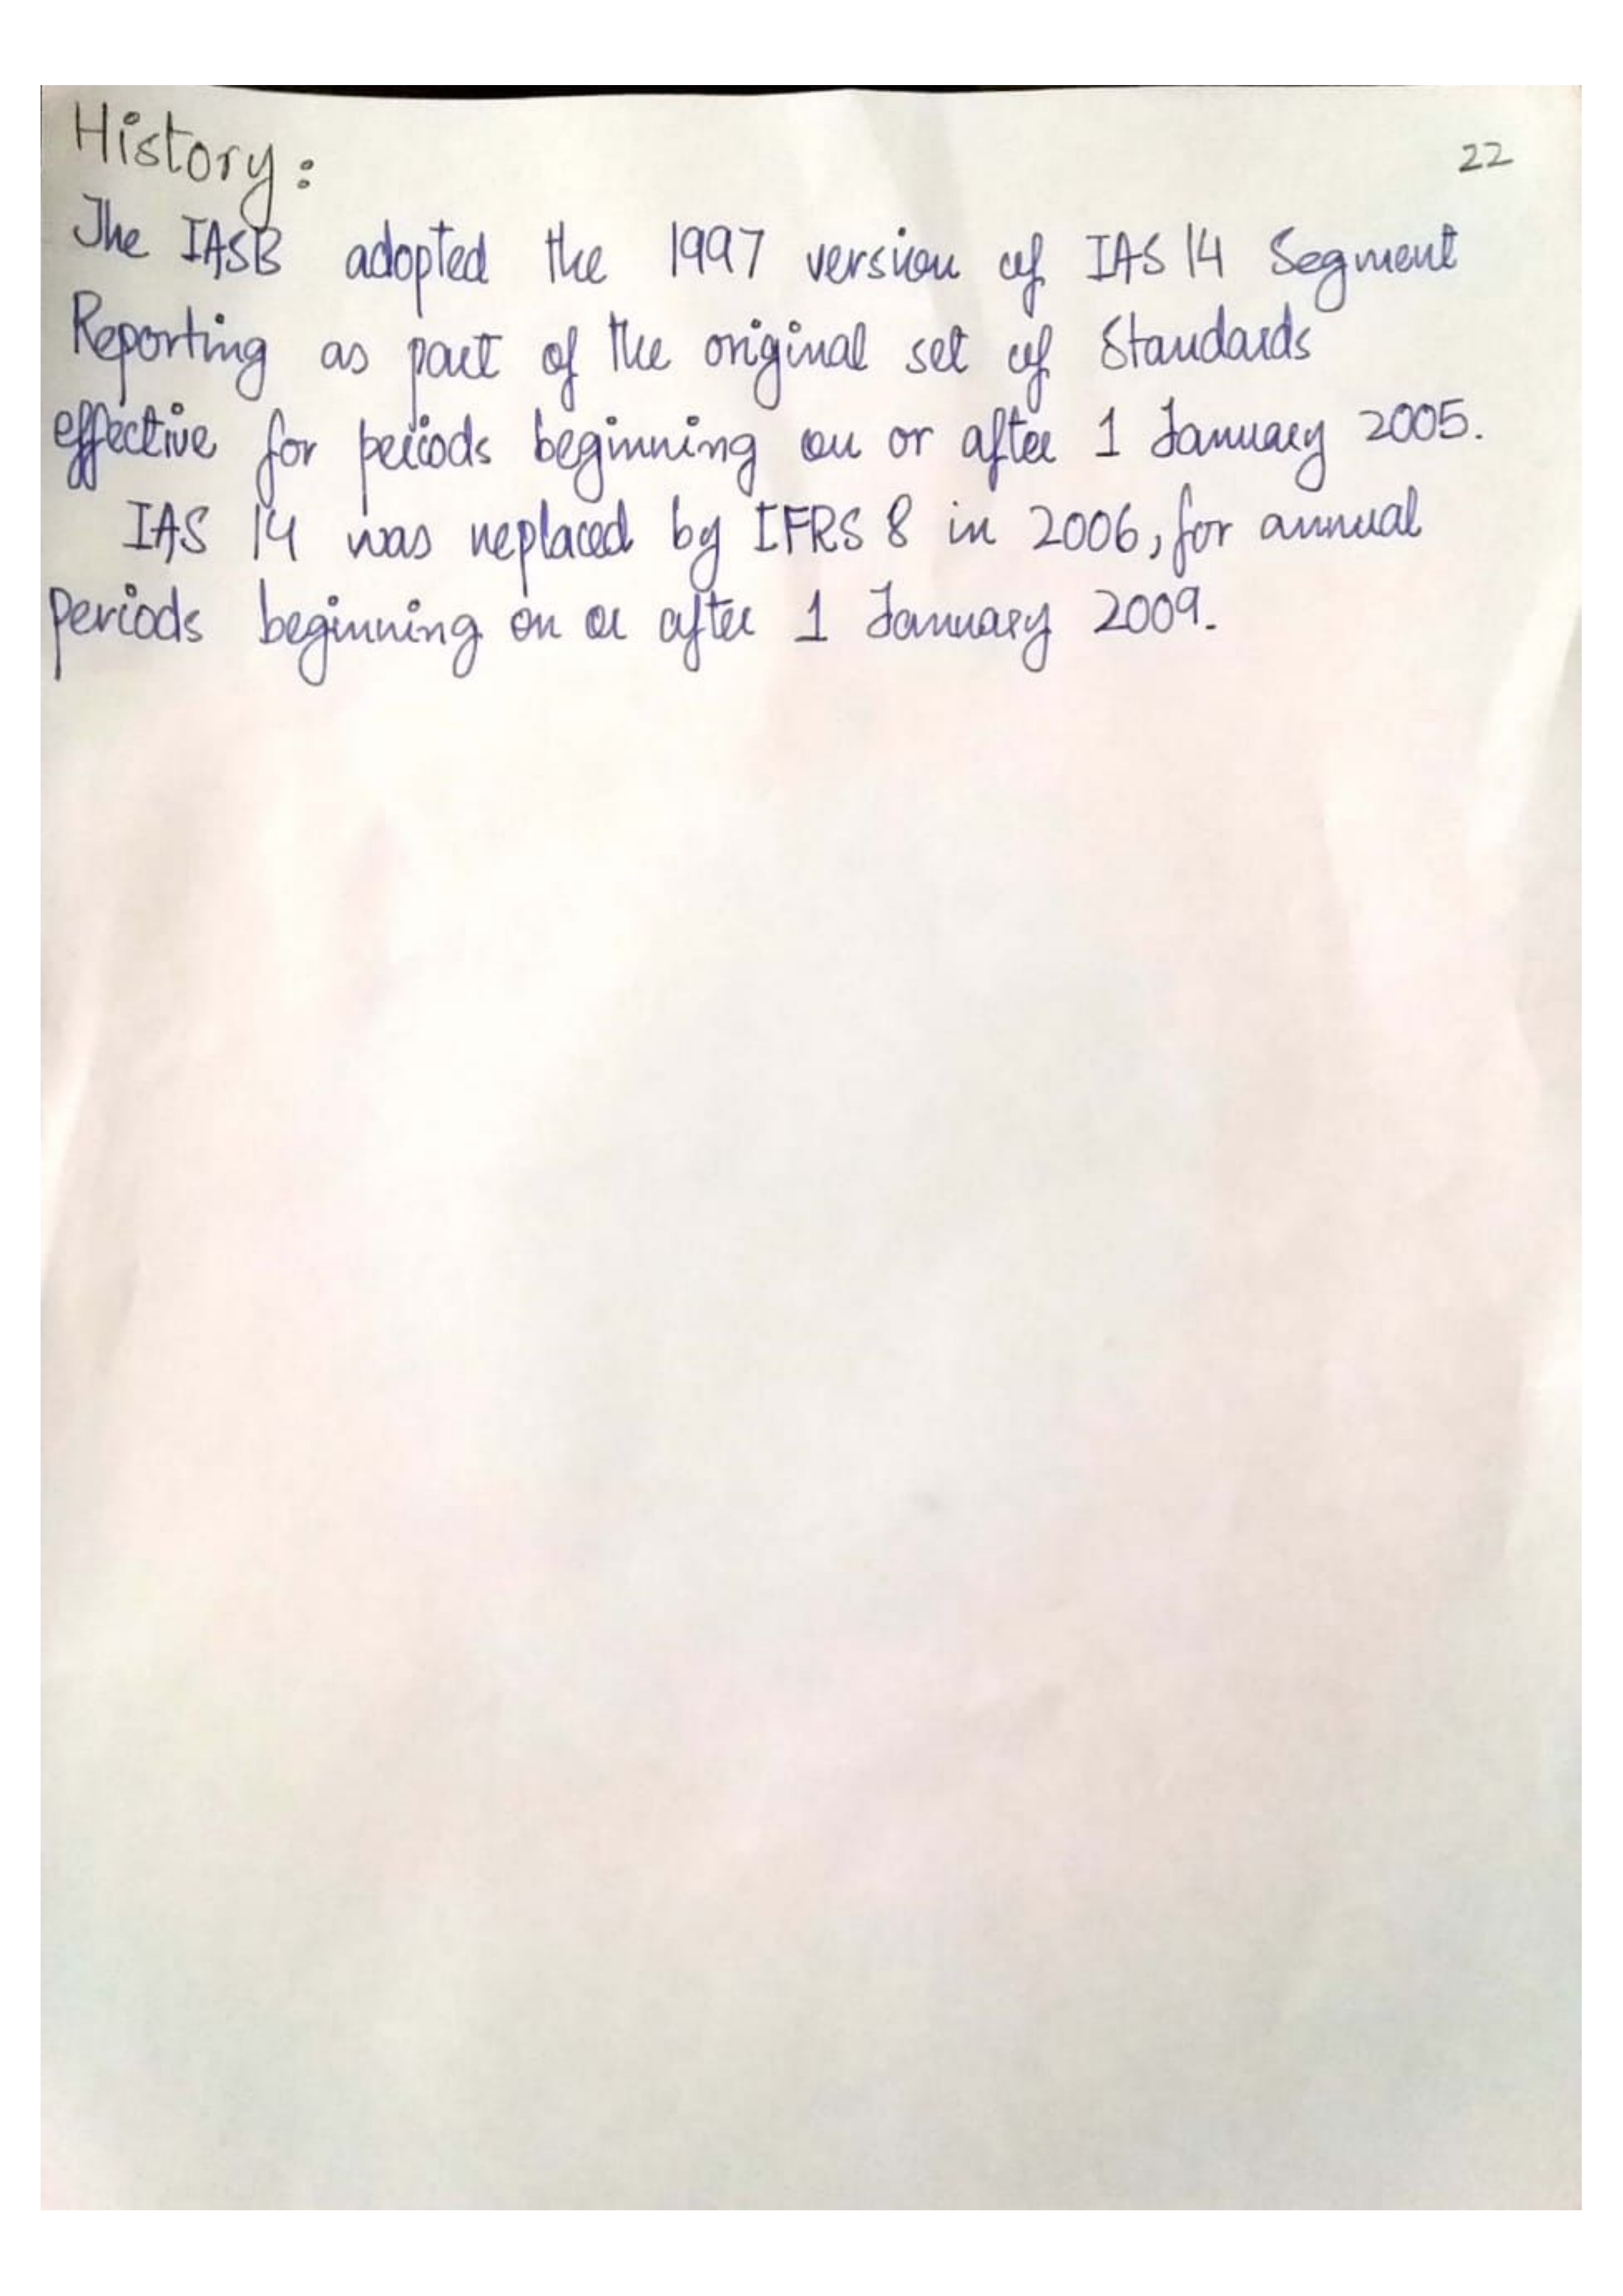 History:
22
The IASB adopted the 1997 version of IAS 14 Segment
Reporting as part of the original set of Standards
effective for periods beginning on or after 1 January 2005.
IAS 14 was replaced by IFRS 8 in 2006, for annual
periods beginning on or after 1 January 2009.